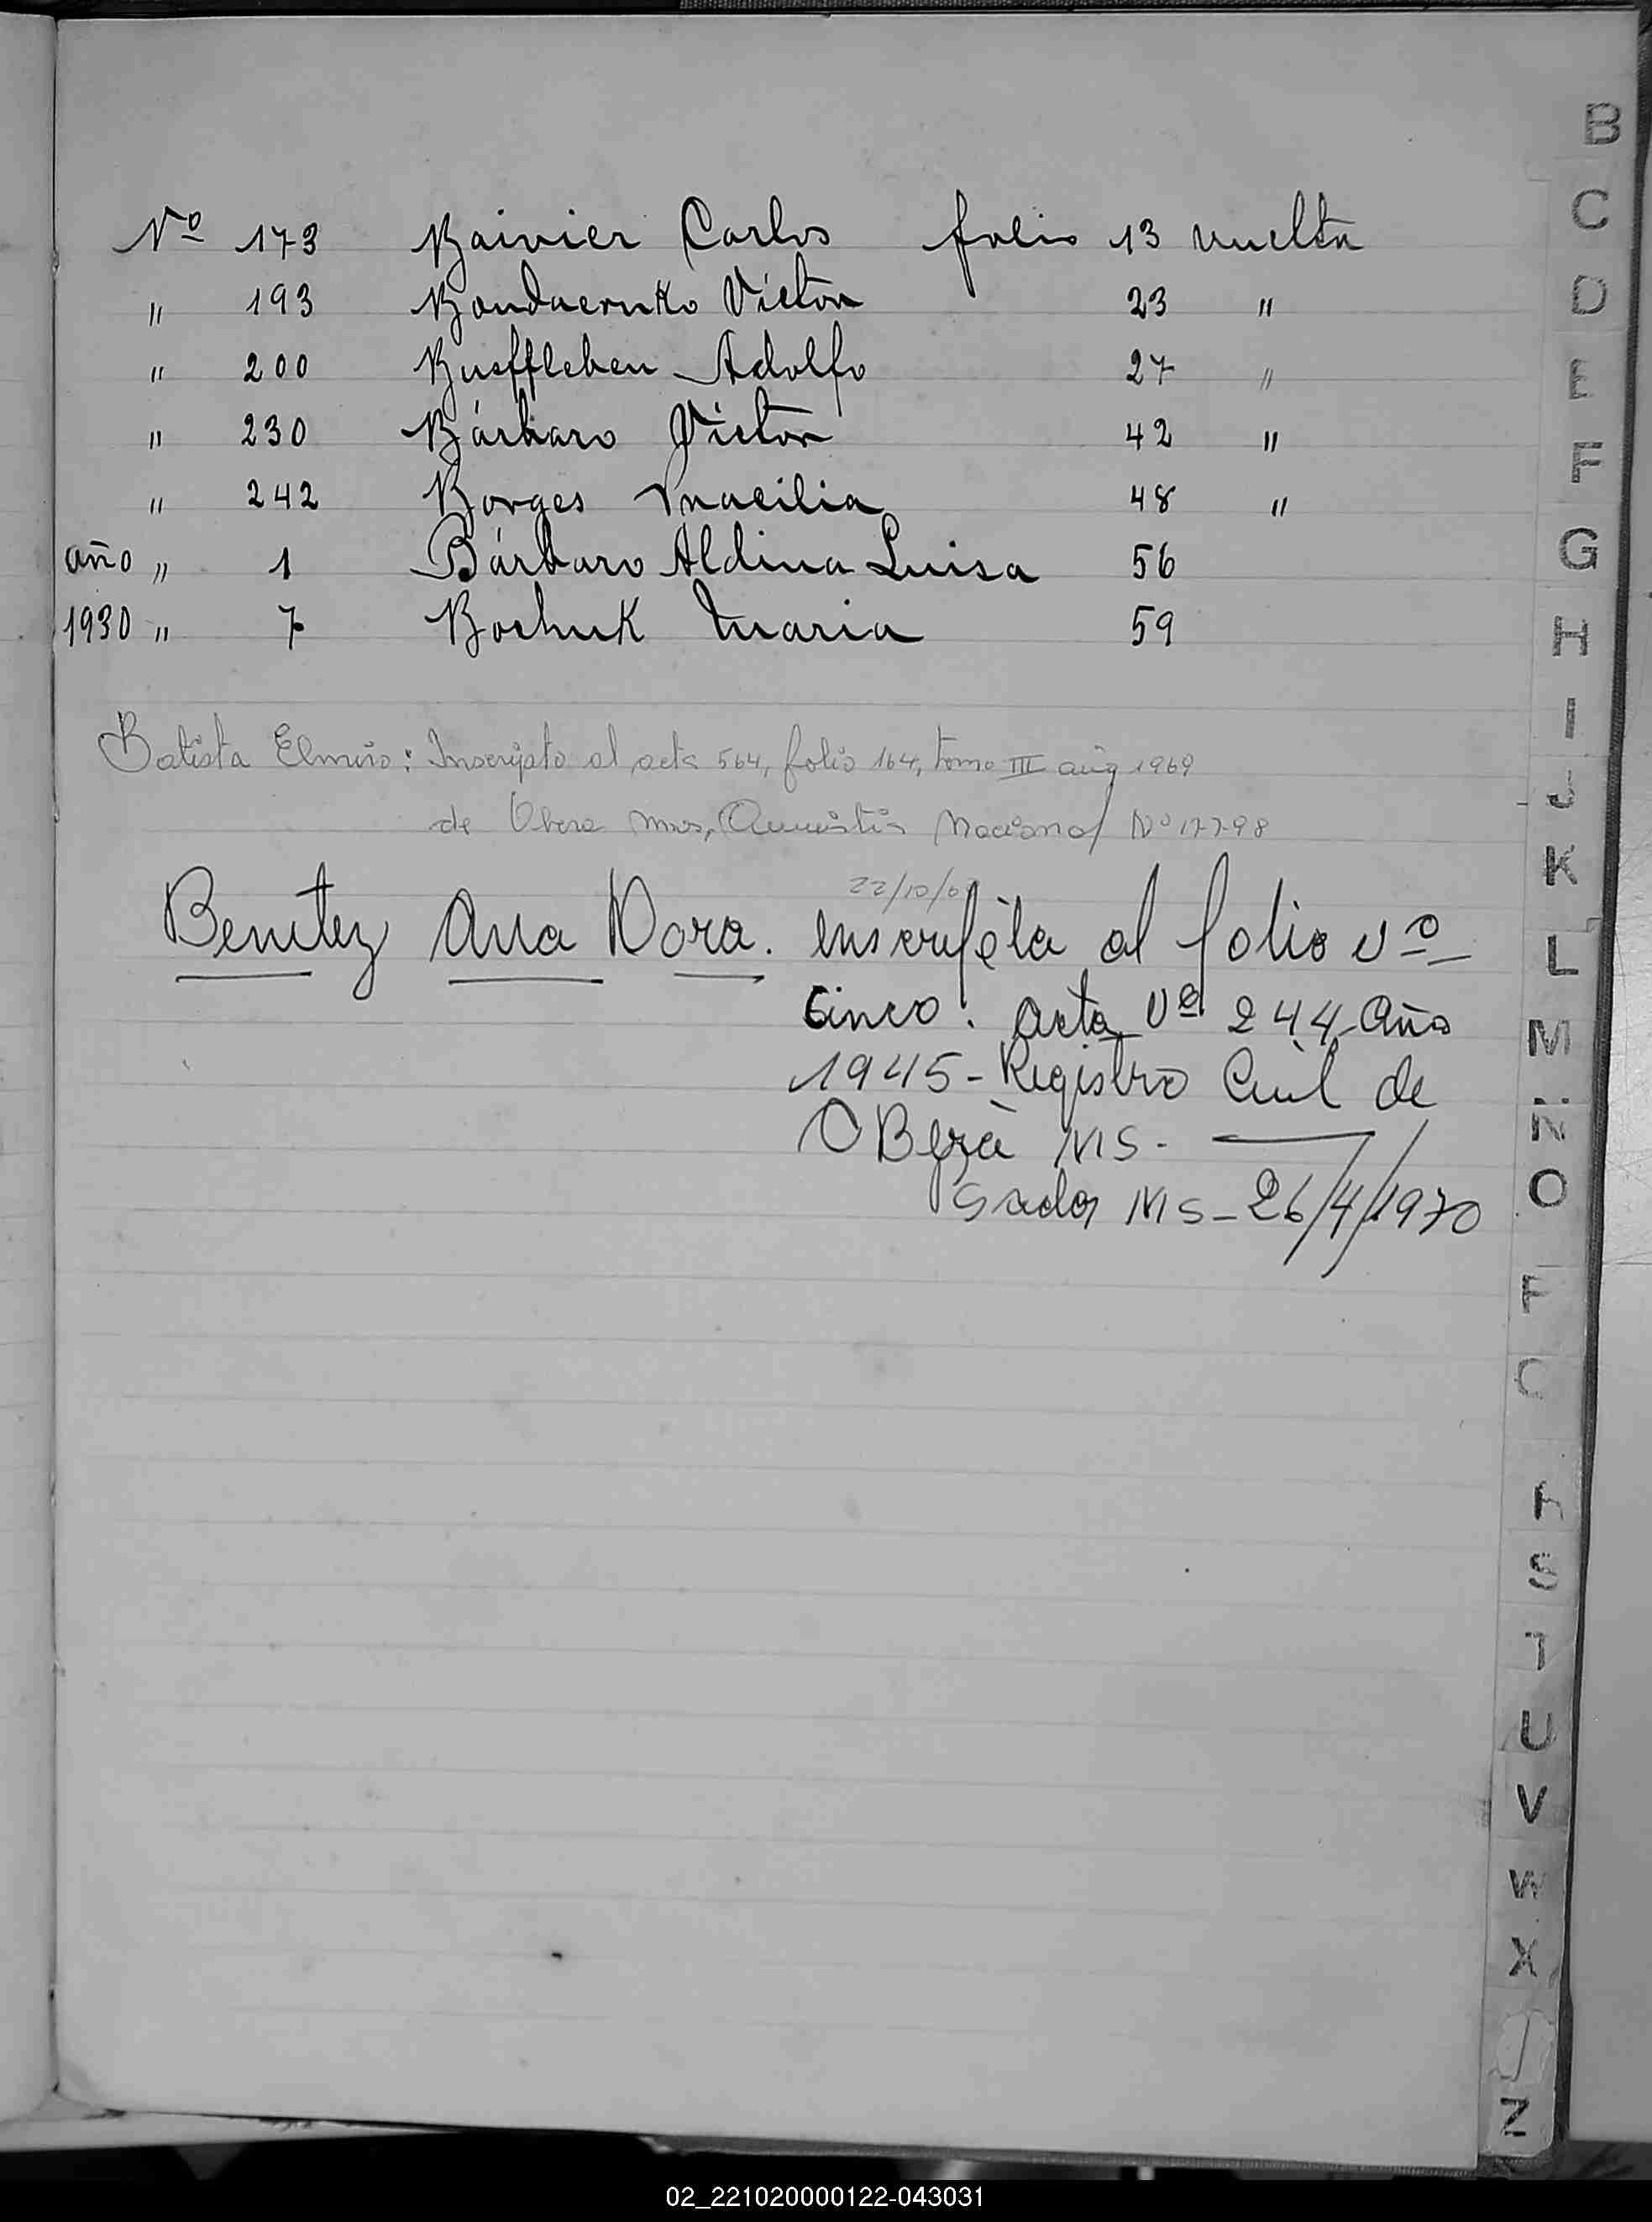 Nº 173 Baivier Carlos folio 13 vuelta
" 193 Bonduernko Victor 23 "
" 200 Bueffleben Adolfo 27 "
" 230 Bárbaro Victor 42 "
" 242 Borges 48 "
año " 1 Bárbaro Aldina Luisa 56
1930 " 7 Bochuk Maria 59
Batista Elmiro: Inscripto al acta 564, folio 164, tomo III año 1969
de Obera Mnes, Amnistia Nacional Nº 17798
22/10/6
Benitez Ana Dora. inscripta al folio Nº
Cinco. acta Nº 244 Año
1945 - Registro Civil de
OBerá MS.
MS - 26/4/1970
B
C
D
E
F
G
H
I
J
K
L
M
N
O
P
C
R
S
T
U
V
W
X
Z
02_221020000122-043031